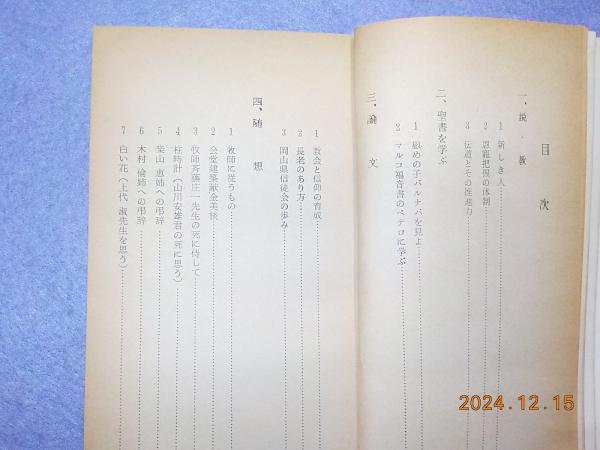 目次
一、説教
1 新しき人
2 恩寵把握の体制
3 伝道とその推進力
二、聖書を学ぶ
1 慰めの子バルナバを見よ
2 マルコ福音書のペテロに学ぶ
三、論文
1 教会と信仰の育成
2 長老のあり方
3 岡山県信徒会の歩み
四、随想
1 牧師に従うもの
2 会堂建築献金美談
3 牧師斉藤庄一先生の死に侍して
4 柱時計(山川安雄君の死に思う)
5 柴山恵姉への弔辞
6 木村倫姉への弔辞
7 白い花(上代淑先生を思う)
2024.12.15